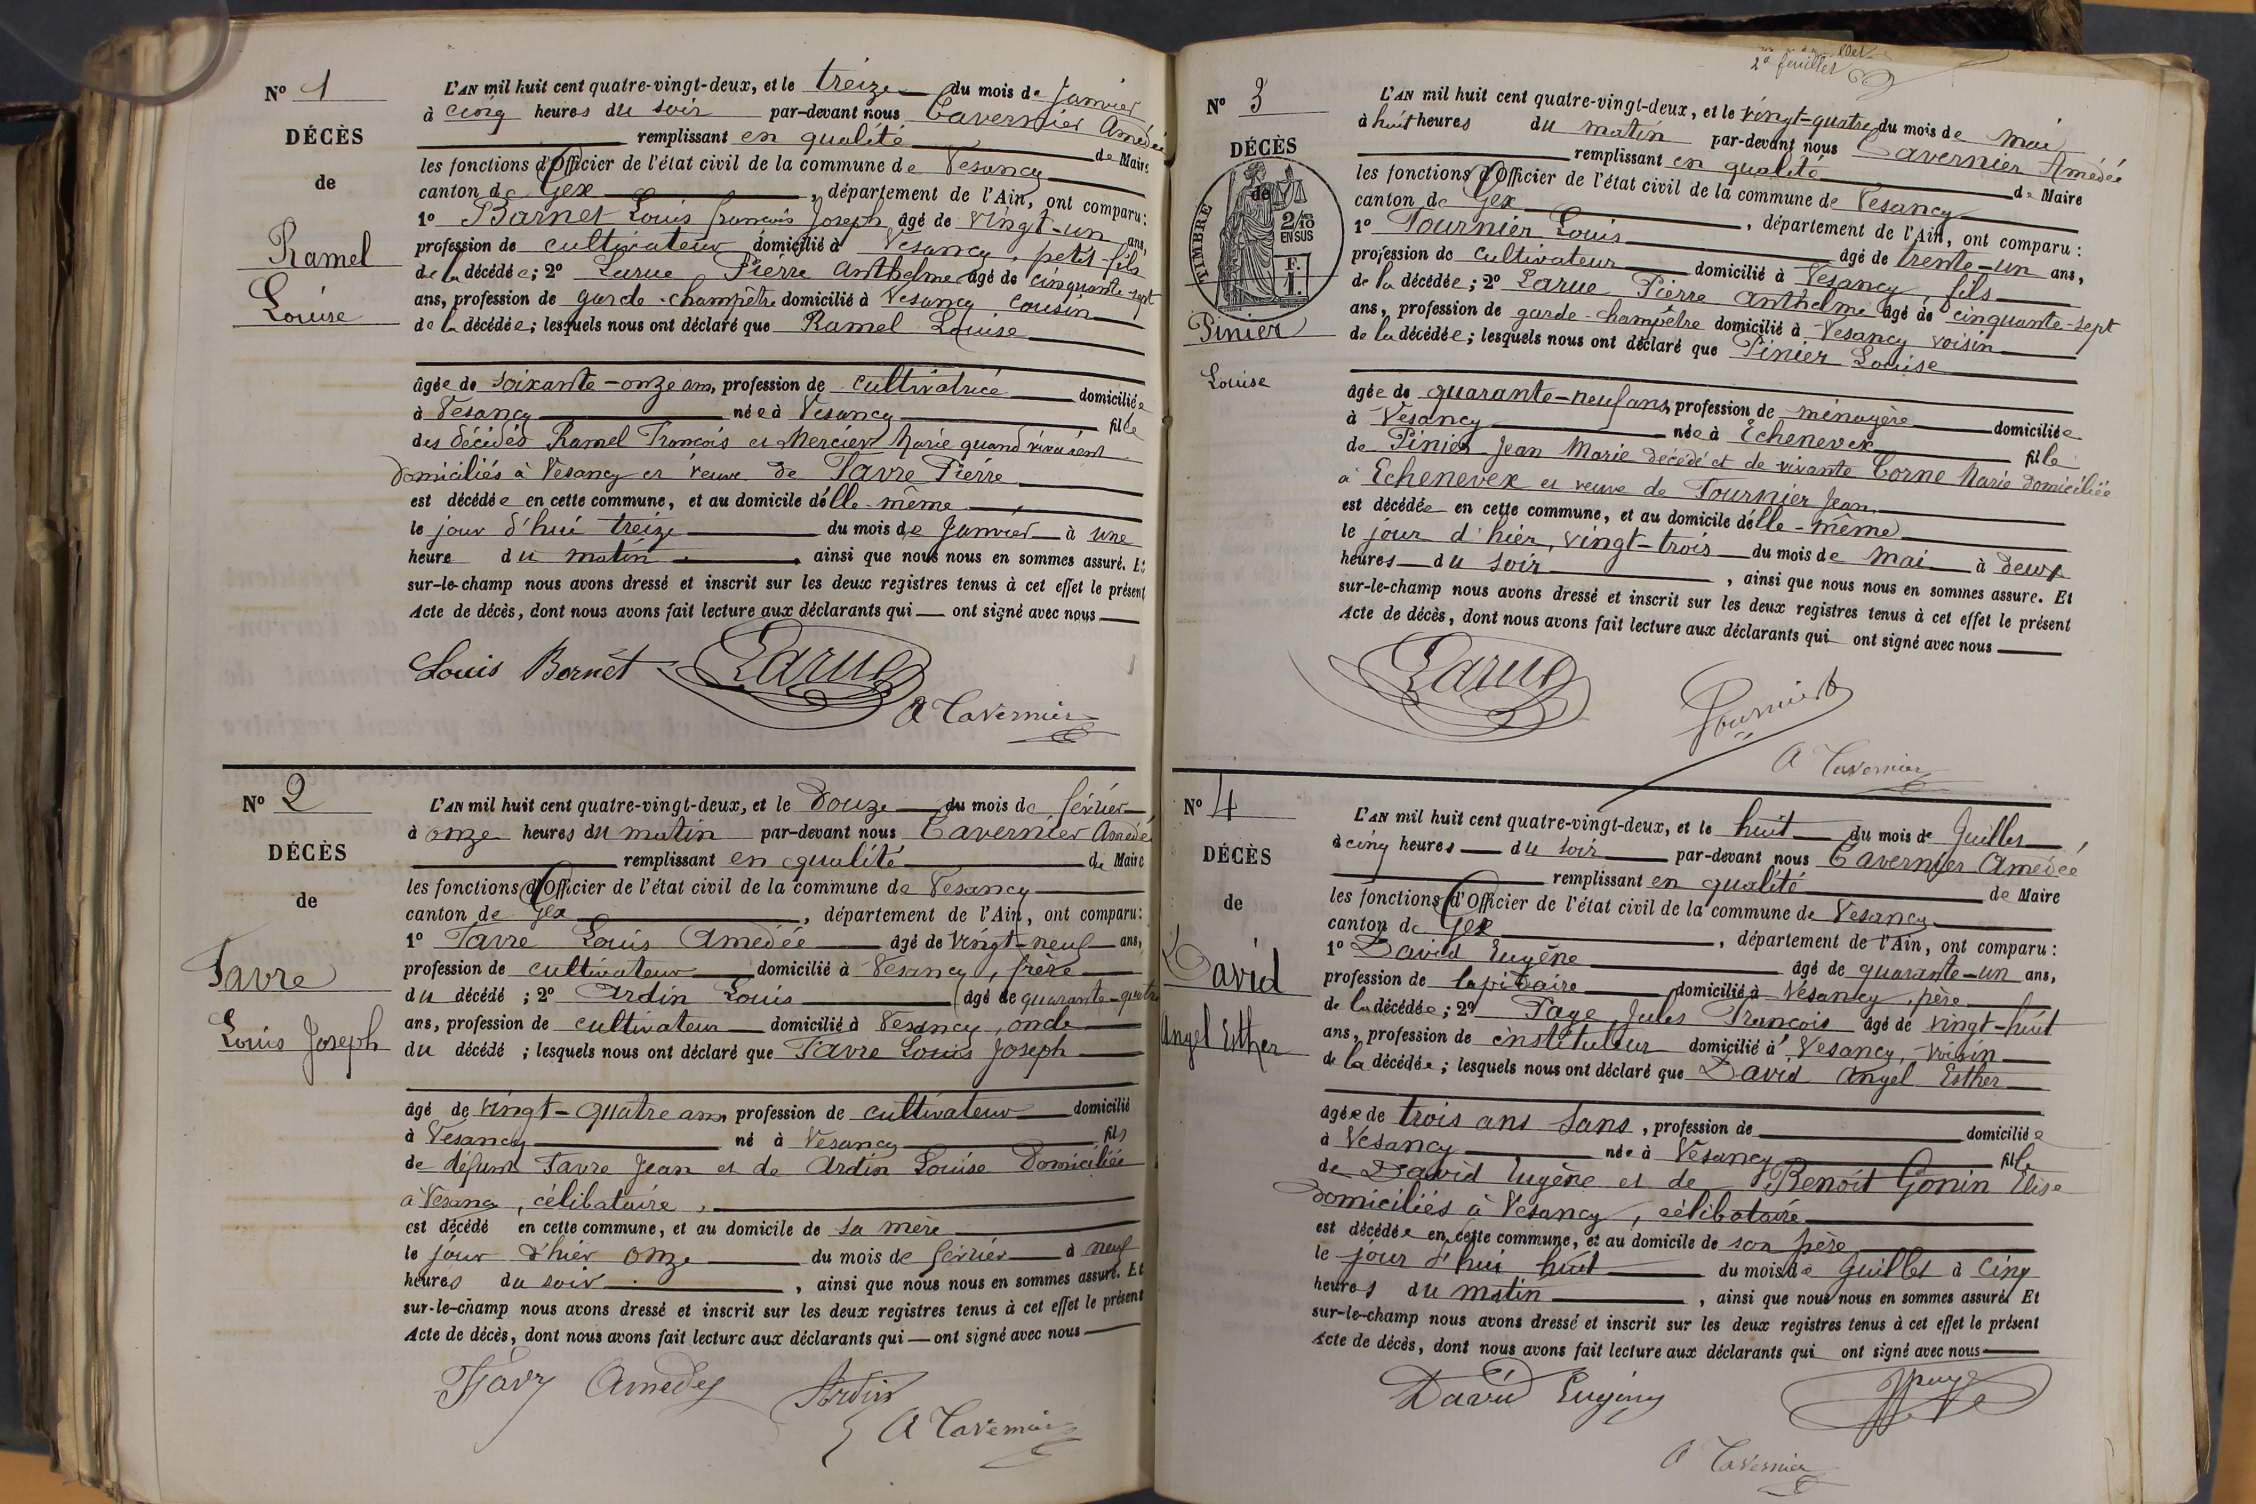 Nº 1
DÉCÈS
de
Ramel
Louise
L'AN mil huit cent quatre-vingt-deux, et le treize du mois de Janvier
à cinq heures du soir par-devant nous Tavernier Amédée
remplissant en qualité de Maire
les fonctions d'Officier de l'état civil de la commune de Vesancy
canton de Gex, département de l'Ain, ont comparu:
1º Barnet Louis françois Joseph âgé de vingt-un ans,
profession de cultivateur domicilié à Vesancy, petit-fils
de la décédée; 2º Larue Pierre Anthelme âgé de cinquante-sept
ans, profession de garde-champêtre domicilié à Vesancy cousin
de la décédée; lesquels nous ont déclaré que Ramel Louise
âgée de soixante-onze ans, profession de cultivatrice domiciliée
à Vesancy née à Vesancy fille
des décédés Ramel François et Mercier Marie quand vivaient
domiciliés à Vesancy et veuve de Favre Pierre
est décédée en cette commune, et au domicile d'elle-même
le jour d'hui treize du mois de Janvier à une
heure du matin, ainsi que nous nous en sommes assuré. Et
sur-le-champ nous avons dressé et inscrit sur les deux registres tenus à cet effet le présent
Acte de décès, dont nous avons fait lecture aux déclarants qui ont signé avec nous
Louis Bornet Larue
A Tavernier
Nº 2
DÉCÈS
de
Favre
Louis Joseph
L'AN mil huit cent quatre-vingt-deux, et le douze du mois de février
à onze heures du matin par-devant nous Tavernier Amédée
remplissant en qualité de Maire
les fonctions d'Officier de l'état civil de la commune de Vesancy
canton de Gex, département de l'Ain, ont comparu:
1º Favre Louis Amédée âgé de vingt-neuf ans,
profession de cultivateur domicilié à Vesancy, frère
du décédé ; 2º Ardin Louis âgé de quarante-quatre
ans, profession de cultivateur domicilié à Vesancy, oncle
du décédé ; lesquels nous ont déclaré que Favre Louis Joseph
âgé de vingt-quatre ans, profession de cultivateur domicilié
à Vesancy né à Vesancy fils
de défunt Favre Jean et de Ardin Louise Domiciliée
à Vesancy, célibataire,
est décédé en cette commune, et au domicile de sa mère
le jour d'hier onze du mois de février à neuf
heures du soir, ainsi que nous nous en sommes assuré. Et
sur-le-champ nous avons dressé et inscrit sur les deux registres tenus à cet effet le présent
Acte de décès, dont nous avons fait lecture aux déclarants qui ont signé avec nous
Amedey Ardin
A Tavernier
2e feuillet
Nº 3
DÉCÈS
de
TIMBRE
2/10
EN SUS
F.
1.
Pinier
Louise
L'AN mil huit cent quatre-vingt-deux, et le vingt-quatre du mois de mai
à huit heures du matin par-devant nous Tavernier Amédée
remplissant en qualité de Maire
les fonctions d'Officier de l'état civil de la commune de Vesancy
canton de Gex, département de l'Ain, ont comparu :
1º Fournier Louis âgé de trente-un ans,
profession de cultivateur domicilié à Vesancy fils
de la décédée; 2º Larue Pierre Anthelme âgé de cinquante-sept
ans, profession de garde-champêtre domicilié à Vesancy voisin
de la décédée; lesquels nous ont déclaré que Pinier Louise
âgée de quarante-neuf ans, profession de ménagère domiciliée
à Vesancy née à Echenevex fille
de Pinier Jean Marie décédé et de vivante Corne Marie domiciliée
à Echenevex et veuve de Fournier Jean,
est décédée en cette commune, et au domicile d'elle-même
le jour d'hier, vingt-trois du mois de mai à deux
heures du soir, ainsi que nous nous en sommes assuré. Et
sur-le-champ nous avons dressé et inscrit sur les deux registres tenus à cet effet le présent
Acte de décès, dont nous avons fait lecture aux déclarants qui ont signé avec nous
Larue Fournier
A Tavernier
Nº 4
DÉCÈS
de
David
Angel Esther
L'AN mil huit cent quatre-vingt-deux, et le huit du mois de Juillet
à cinq heures du soir par-devant nous Tavernier Amédée
remplissant en qualité de Maire
les fonctions d'Officier de l'état civil de la commune de Vesancy
canton de Gex, département de l'Ain, ont comparu :
1º David Eugène âgé de quarante-un ans,
profession de lapidaire domicilié à Vesancy, père
de la décédée; 2º Page Jules François âgé de vingt-huit
ans, profession de instituteur domicilié à Vesancy, voisin
de la décédée; lesquels nous ont déclaré que David Angel Esther
âgée de trois ans sans, profession de domiciliée
à Vesancy née à Vesancy fille
de David Eugène et de Benoit Gonin Elise
domiciliés à Vesancy, célibataire
est décédée en cette commune, et au domicile de son père
le jour d'hui huit du mois de Juillet à cinq
heures du matin, ainsi que nous nous en sommes assuré. Et
sur-le-champ nous avons dressé et inscrit sur les deux registres tenus à cet effet le présent
Acte de décès, dont nous avons fait lecture aux déclarants qui ont signé avec nous
David Eugène Jpage
A Tavernier